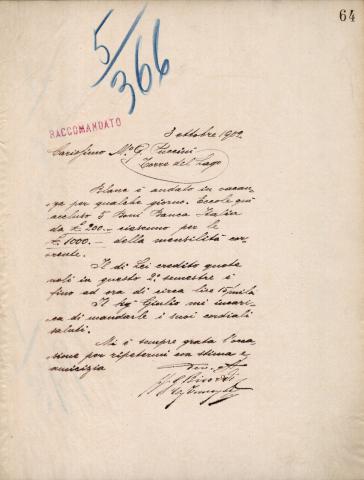 64
5/366
RACCOMANDATO
3 ottobre 1902.
Carissimo Mo G. Puccini
Torre del Lago
Blanc è andato in vacan-
za per qualche giorno. Eccole qui
accluso 5 Buoni Banca Italia
da £ 200.- ciascuno per le
£ 1000.- della mensilità cor-
rente.
Il di Lei credito quote
noli in questo 2o semestre è
fino ad ora di circa lire 15 mila
Il Sigr Giulio mi incari-
ca di mandarle i suoi cordiali
saluti.
Mi è sempre grata l'occa-
sione per ripetermi con stima e
amicizia
G. Ricordi